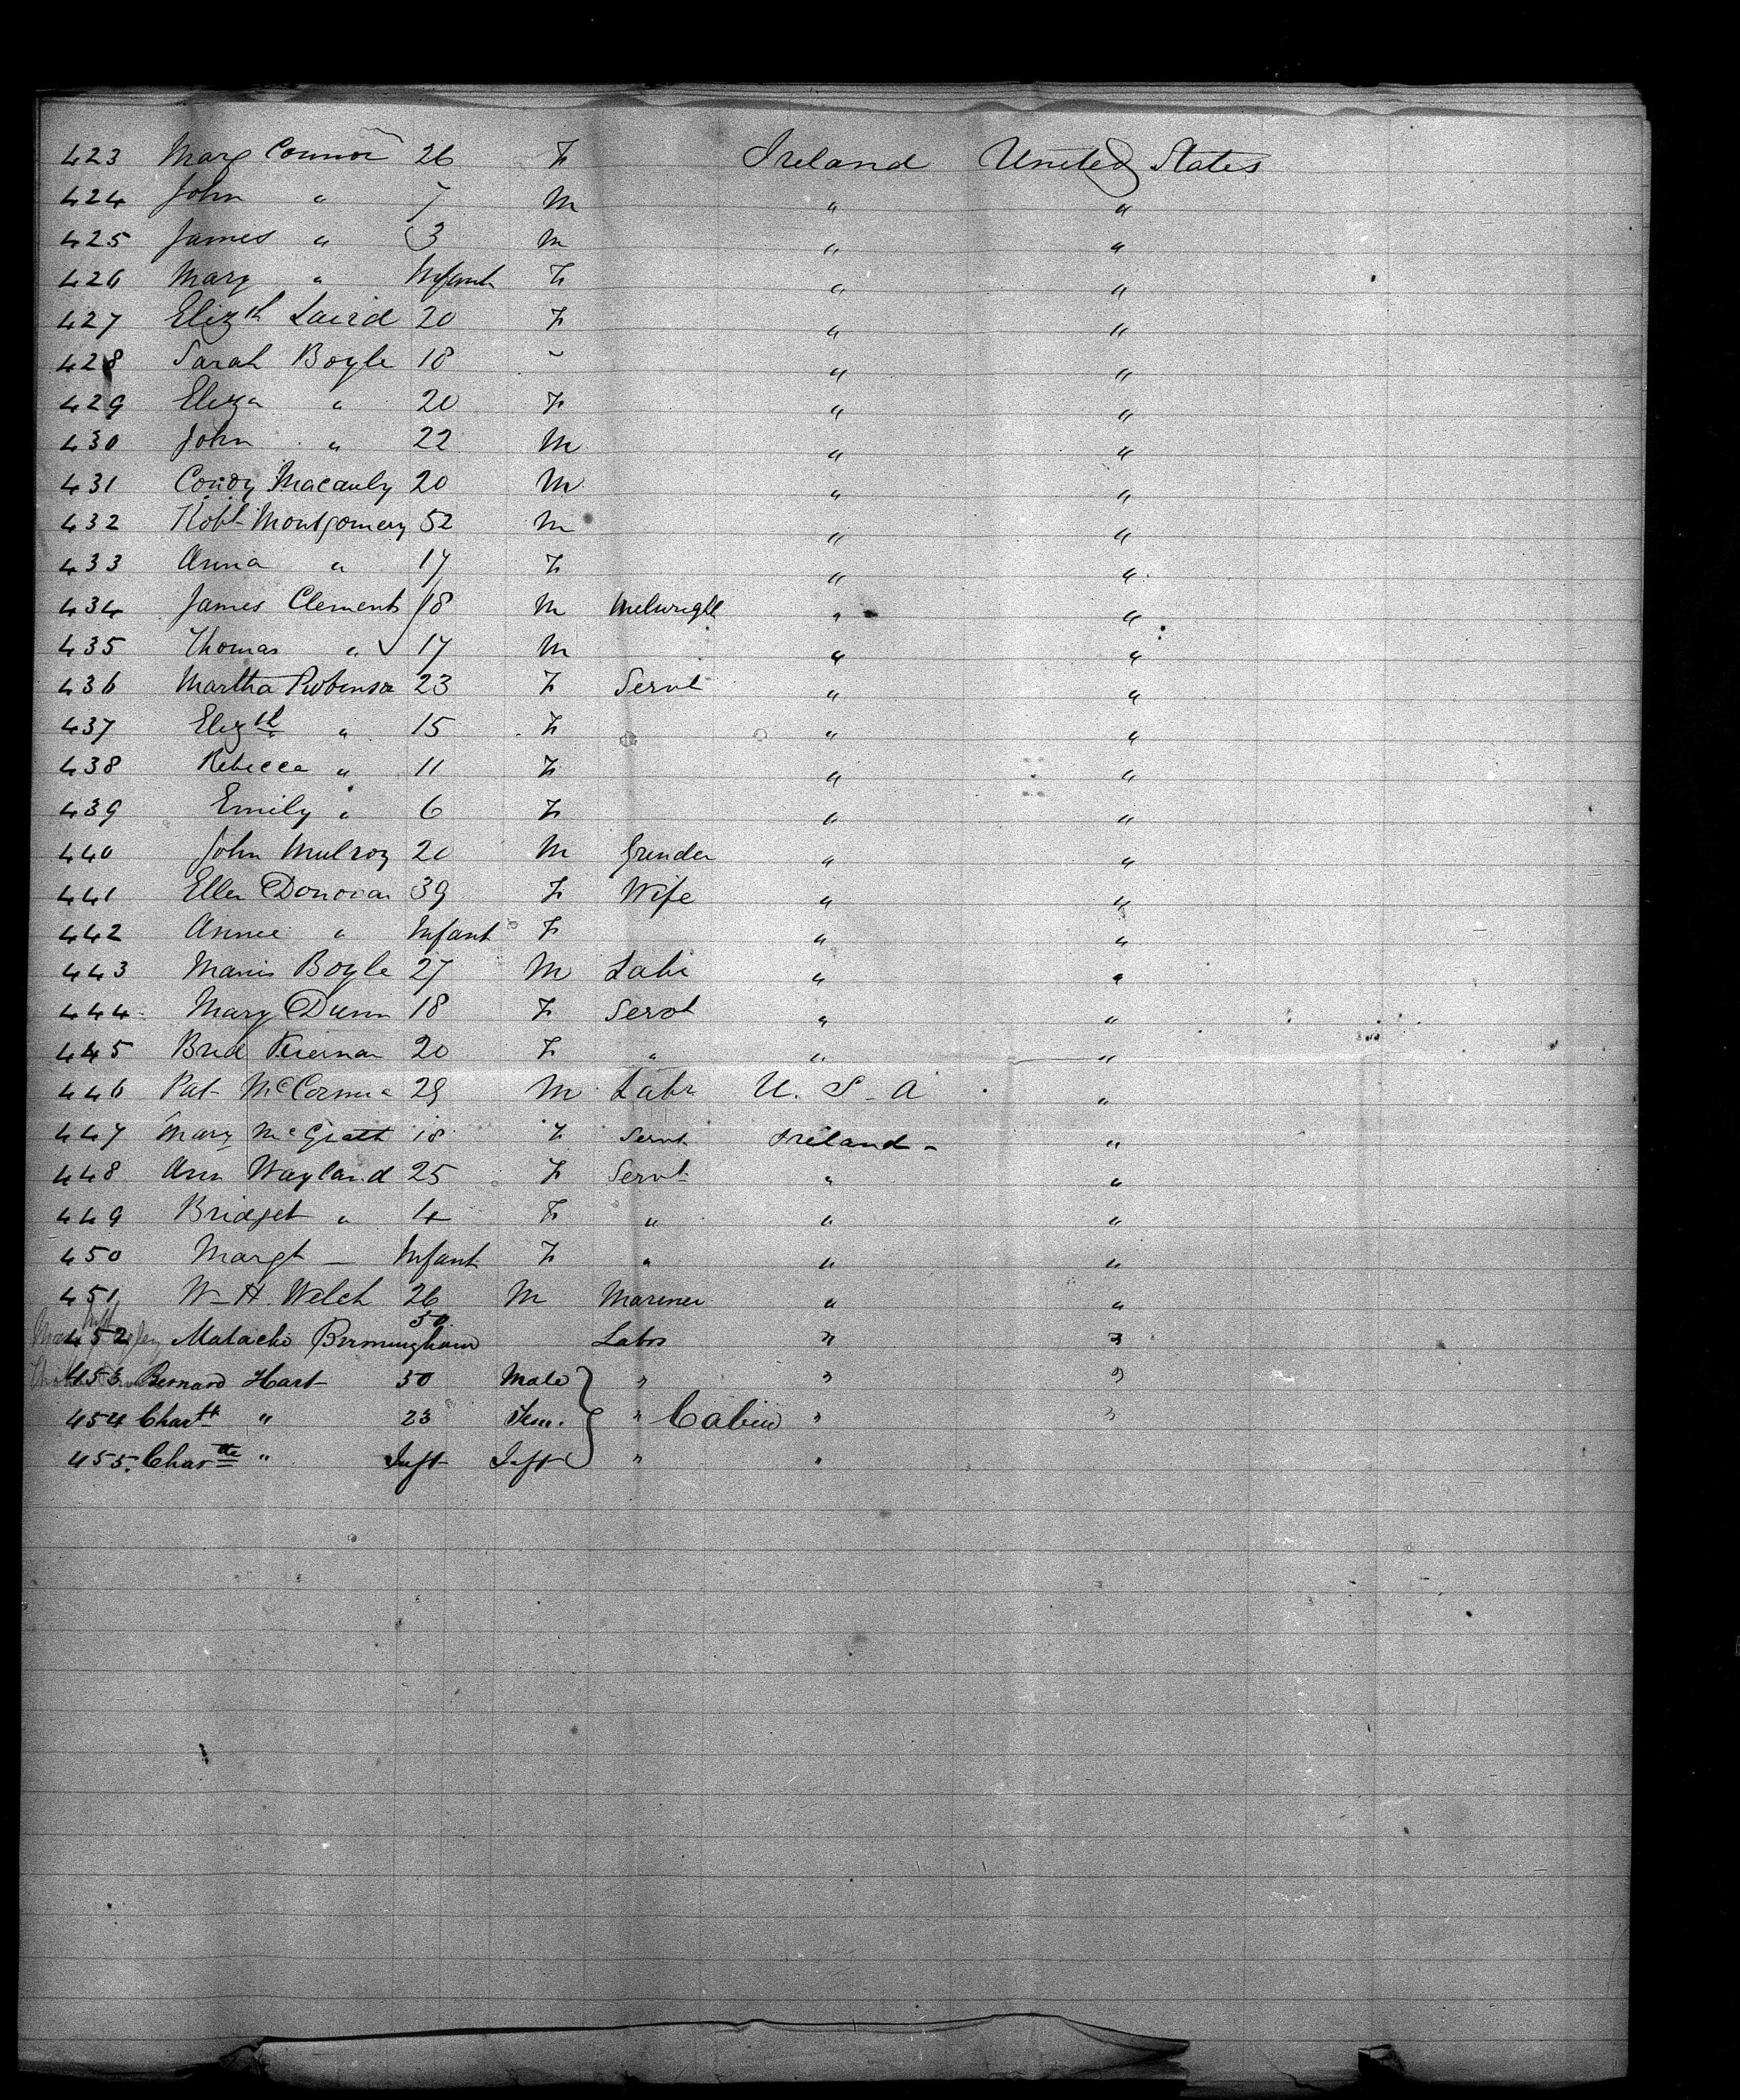 423 Mary Connor 26 F Ireland United States
424 John " 7 M " "
425 James " 3 M " "
426 Mary " Infant F " "
427 Elizth Laird 20 F " "
428 Sarah Boyle 18 " " "
429 Eliza " 20 F " "
430 John " 22 M " "
431 Condy Macauly 20 M " "
432 Robt Montgomery 52 M " "
433 Anna " 17 F " "
434 James Clements 18 M " "
435 Thomas " 17 M " "
436 Martha Robinson 23 F Servt " "
437 Elizth " 15 F " "
438 Rebecca " 11 F " "
439 Emily " 6 F " "
440 John Mulroy 20 M Grinder " "
441 Ellen Donovan 39 F Wife " "
442 Annie " Infant F " "
443 Manis Boyle 27 M Labr " "
444 Mary Dunn 18 F Servt " "
445 Brid Kiernan 20 F " " "
446 Pat McCormic 29 M Labr U. S. A "
447 Mary McGrath 18 F Servt Ireland "
448 Ann Wayland 25 F Servt " "
449 Bridget " 4 F " " "
450 Margt — Infant F " " "
451 W H. Welch 26 M Mariner " "
452 Malachi Bermingham 50 Labr " "
453 Bernard Hart 30 Male " " "
454 Chartt " 23 Fem. " Cabin " "
455. Chartte " Inft Inft " "